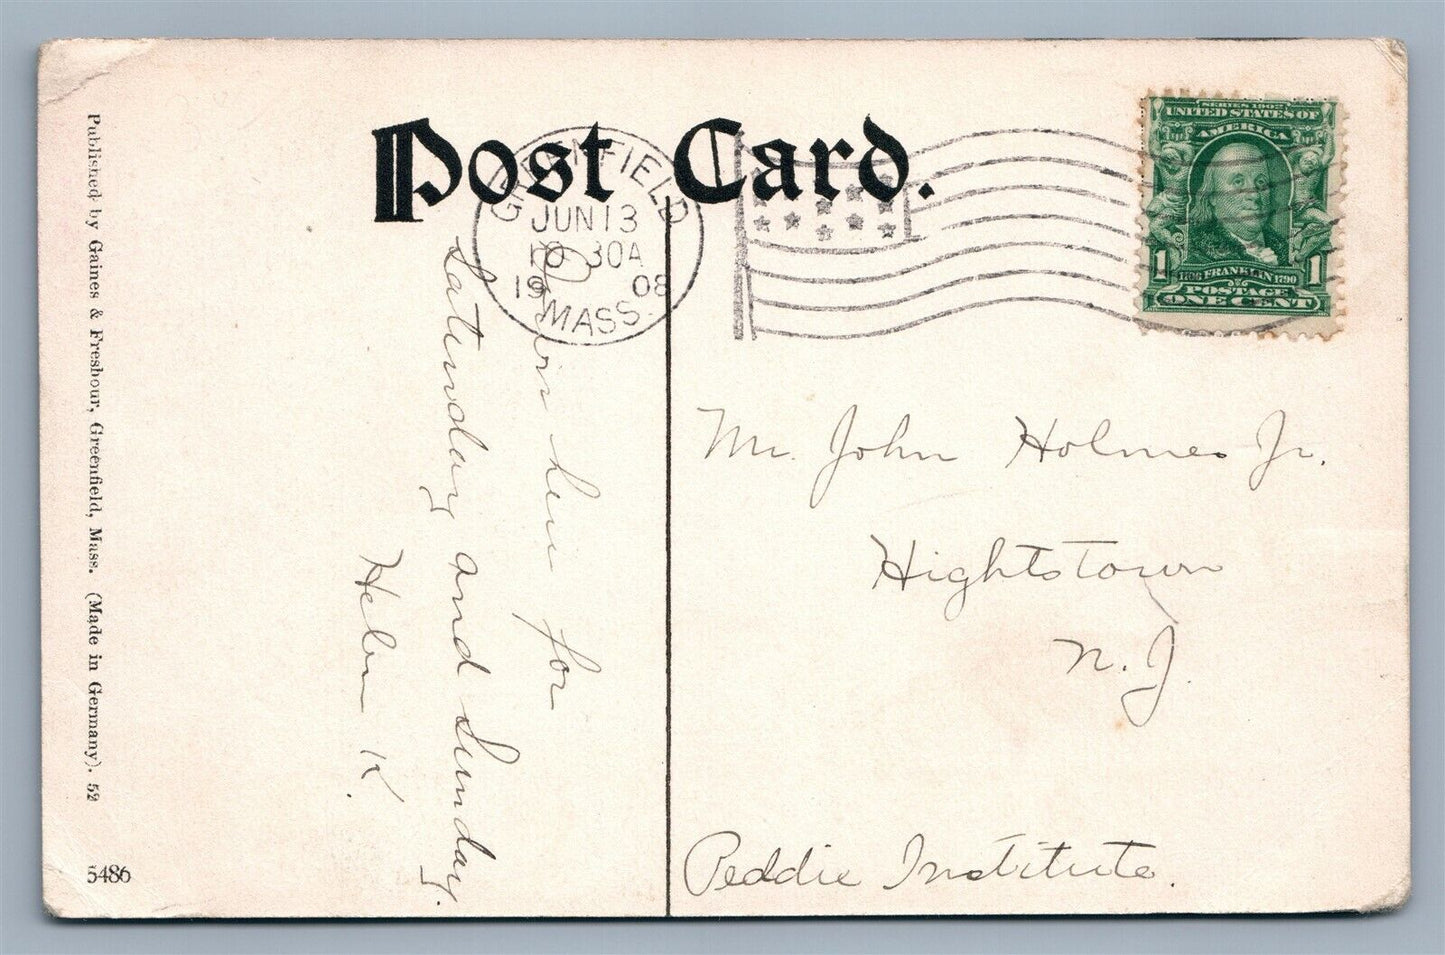 Post Card.
GREENFIELD
JUN 13
10 30A
1908
MASS.
SERIES 1902
UNITED STATES OF
AMERICA
1 1706 FRANKLIN 1790 1
POSTAGE
ONE CENT
Down here for
Saturday and Sunday.
Helen K.
Mr. John Holmes Jr.
Hightstown
N. J.
Peddie Institute.
Published by Gaines & Fresbour, Greenfield, Mass. (Made in Germany). 52
5486